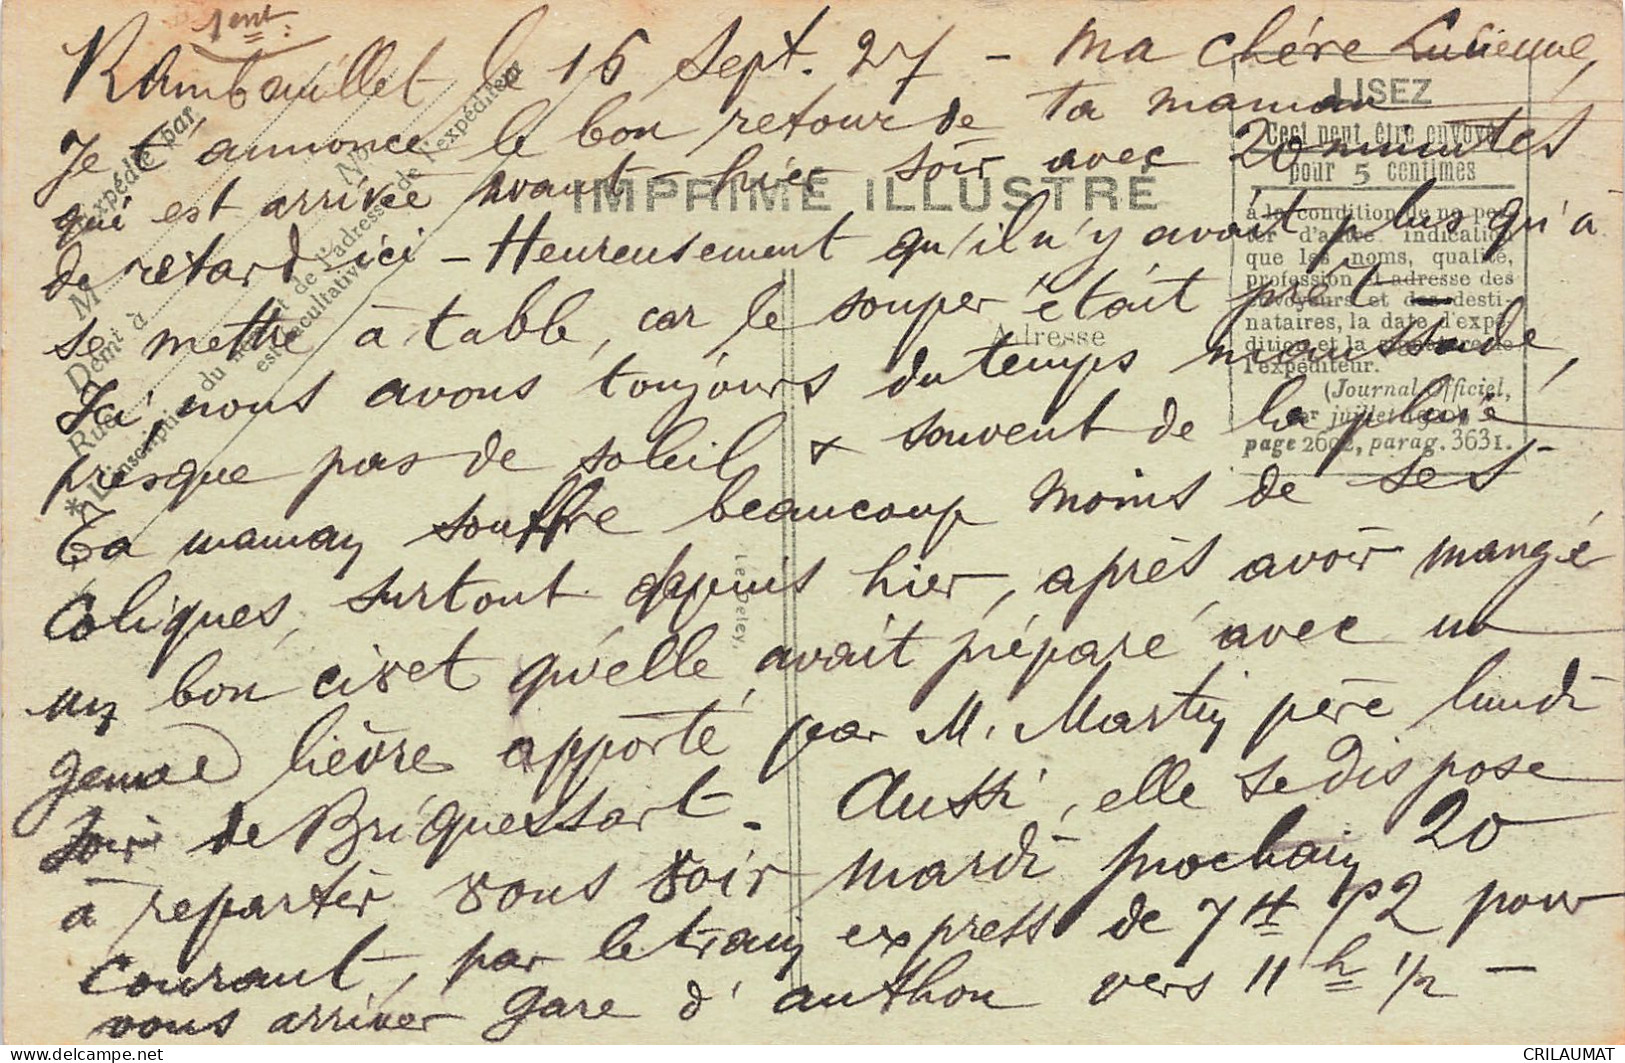 1ent
Rambouillet le 16 Sept. 27 - Ma chère Lucienne,
Je t'annonce le bon retour de ta maman
qui est arrivée avant-hier soir avec 20 minutes
de retard ici - Heureusement qu'il n'y avait plus qu'à
se mettre à table, car le souper était prêt -
Ici nous avons toujours du temps maussade,
presque pas de soleil & souvent de la pluie
Ta maman souffre beaucoup moins de ses
coliques, surtout depuis hier, après avoir mangé
un bon civet qu'elle avait préparé avec un
lièvre apporté par M. Martin père lundi
soir de Briquessart. Aussi, elle se dispose
à repartir vous voir mardi prochain 20
courant, par le train express de 7 H 12 pour
vous arriver gare d'authon vers 11 h 1/2 -
IMPRIMÉ ILLUSTRÉ
Expédié par
M
Demt à
Rue
No
* L'inscription
du nom et de l'adresse de l'expéditeur
est facultative
Adresse
LISEZ
Ceci peut être envoyé
pour 5 centimes
à la condition de ne por-
ter d'autre indication
que les noms, qualité,
profession et adresse des
envoyeurs et des desti-
nataires, la date d'expé-
dition et la signature de
l'expéditeur.
(Journal Officiel,
juillet
page 2602, parag. 3631.
Le Deley
delcampe.net
CRILAUMAT